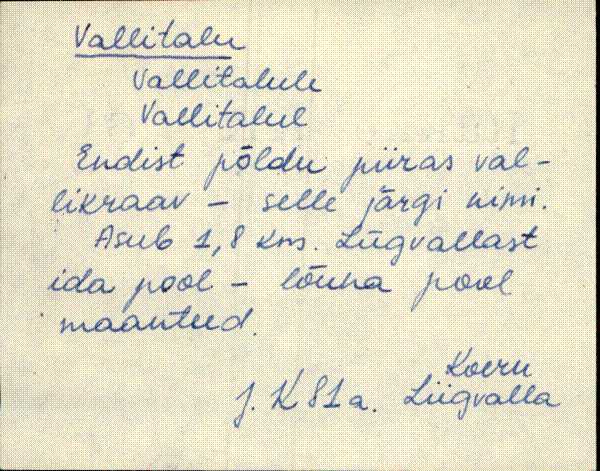 Vallitalu
Vallitalule
Vallitalul
Endist põldu piiras val-
likraav – selle järgi nimi.
Asub 1,8 km. Liigvallast
ida pool – lõuna pool
maanteed.
Koeru
J. K 81a. Liigvalla